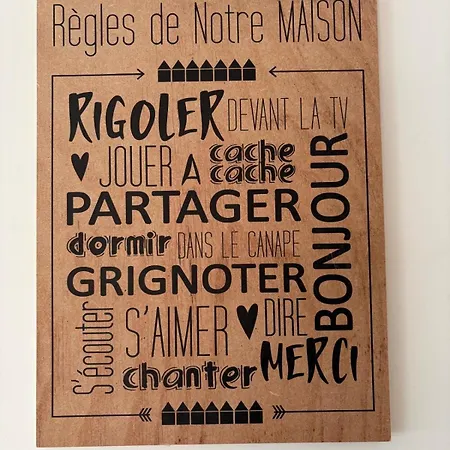 Règles de Notre MAISON
RIGOLER DEVANT LA TV
JOUER A cache cache
PARTAGER
dormir DANS LE CANAPE
GRIGNOTER
BONJOUR
S'écouter
S'AIMER
DIRE
MERCI
chanter